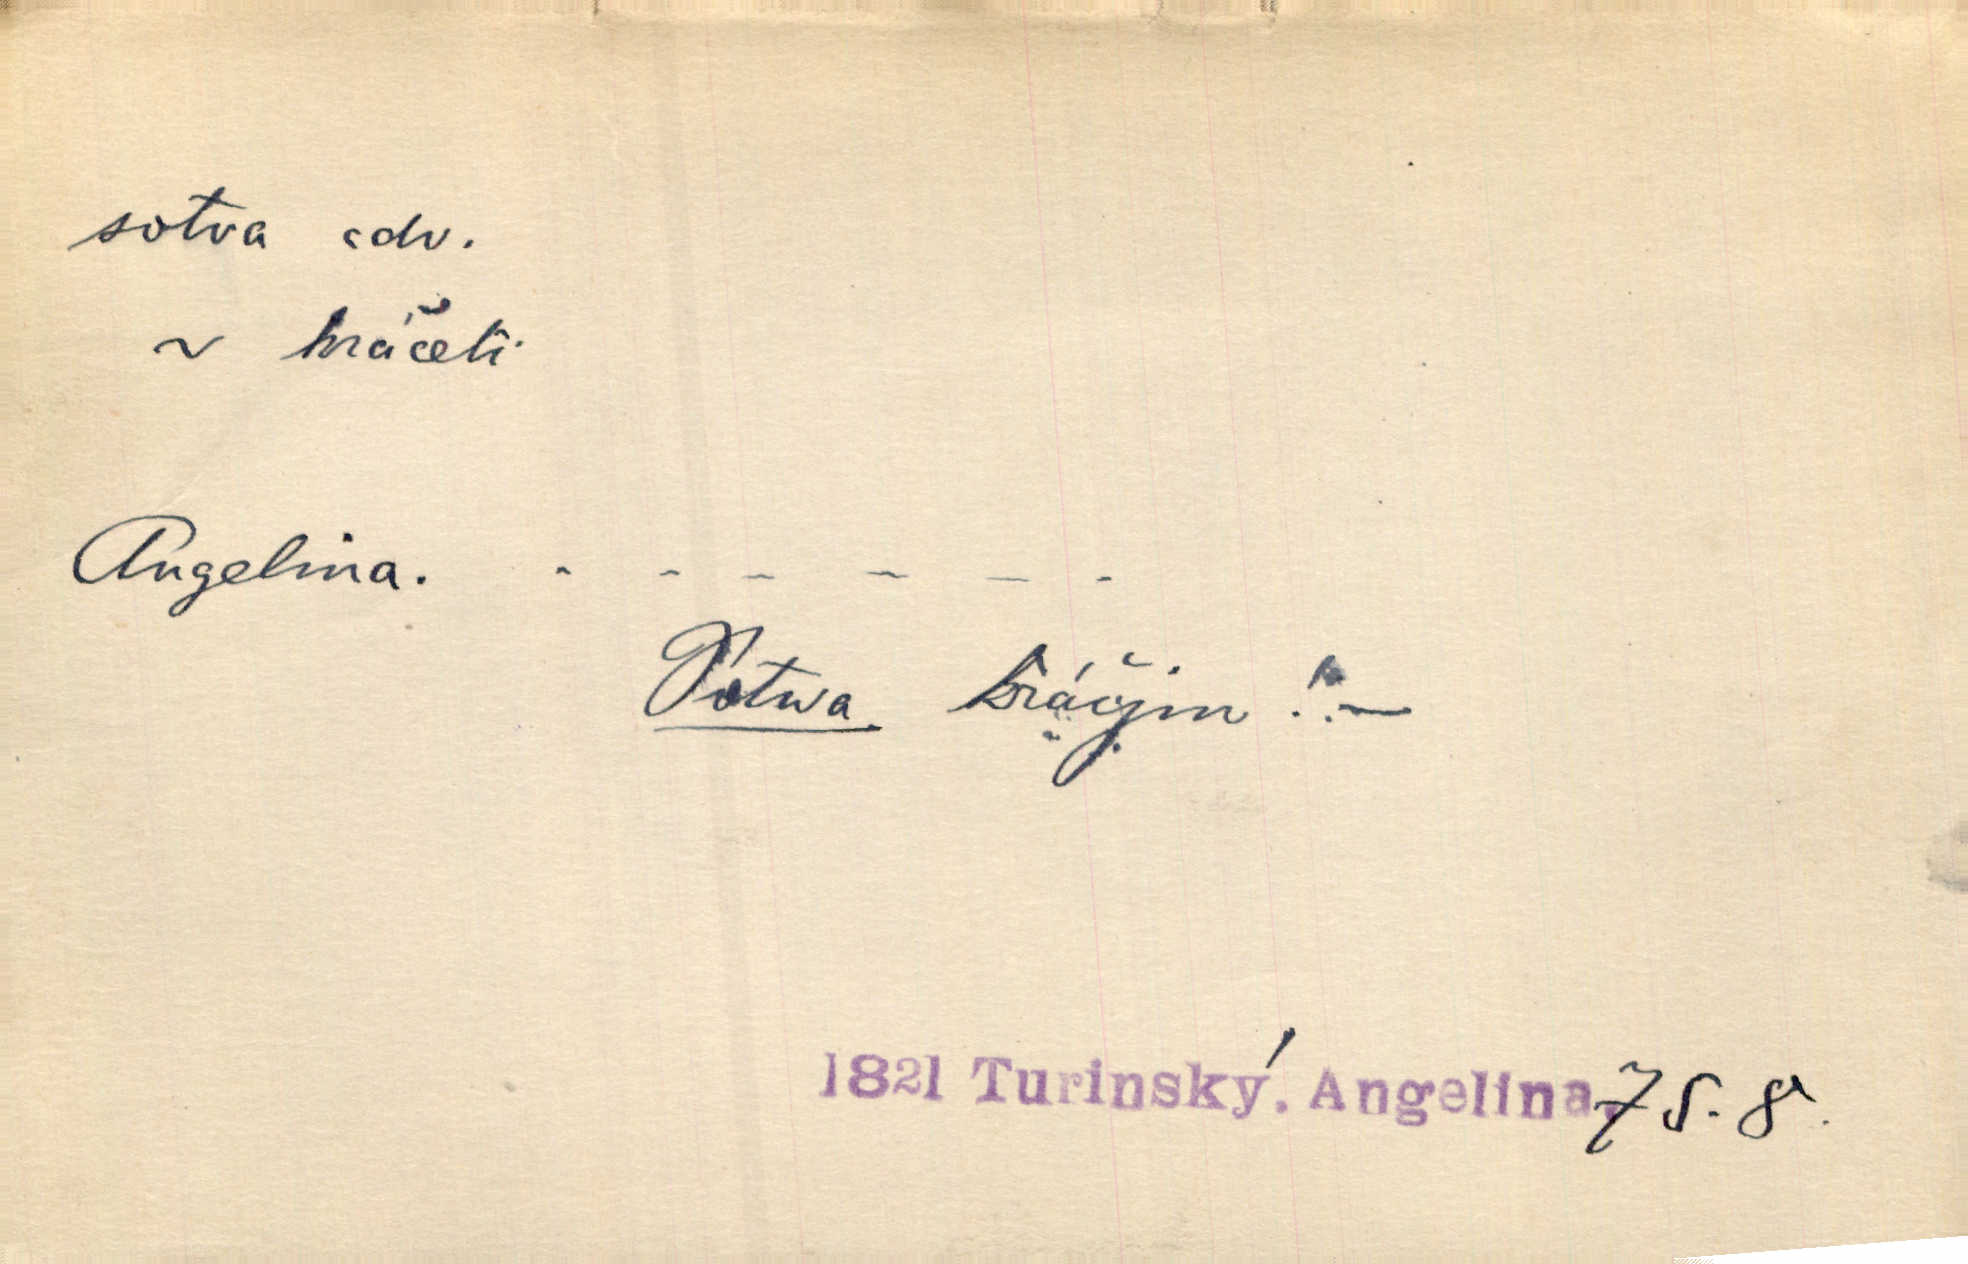 sotva adv.
~ kráčeti
Angelina. - - - - - -
Sotwa kráčjm ! . –
1821 Turinský. Angelina, 75. 8.